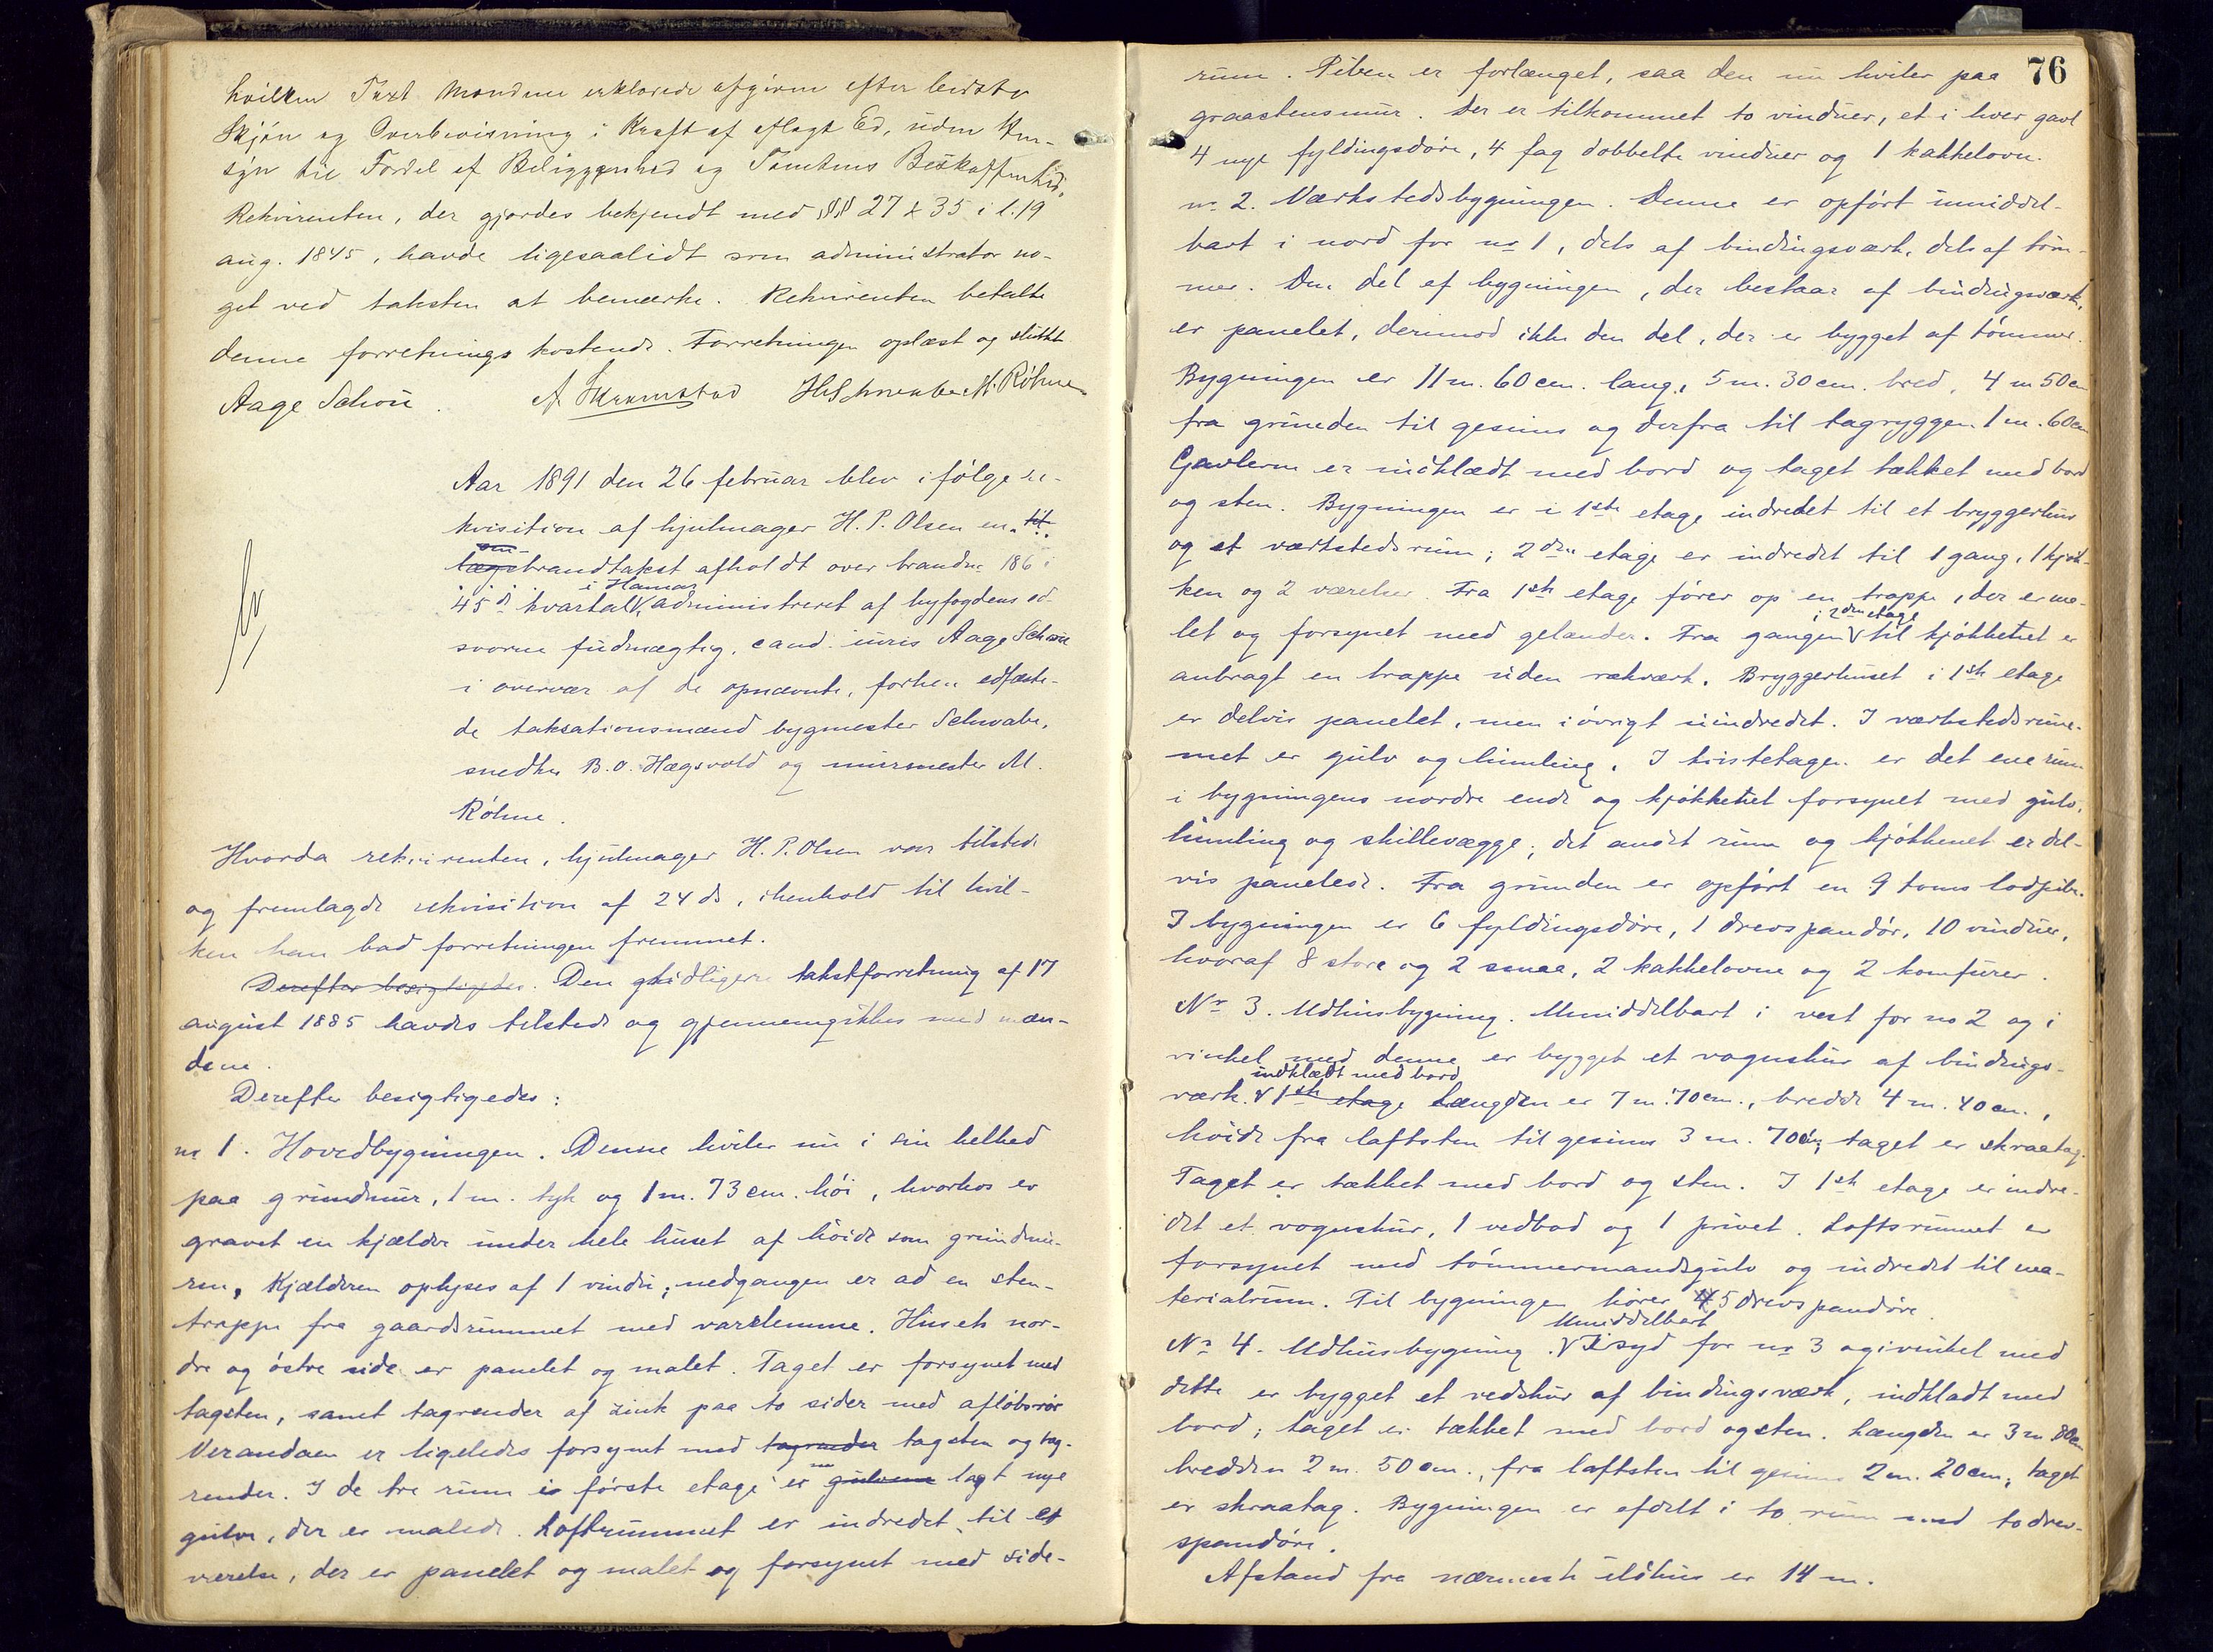 hvilken Taxt Mændene erklærede afgiven efter bedste
Skjøn og Overbevisning i Kraft af aflagt Ed, uden Hen-
syn til Fordel af Beliggenhed og Tomtens Beskaffenhed.
Rekvirenten, der gjordes bekjendt med §§ 27 & 35 i l. 19
aug. 1845, havde ligesaalidt som administrator no-
get ved taksten at bemærke. Rekvirenten betalte
denne forretnings kostende. Forretningen oplæst og sluttet
Aage Schou. H Schwabe M. Røhme
Aar 1891 den 26 februar blev ifølge re-
kvisition af hjulmager H. P. Olsen en til-
om-
lægsbrandtakst afholdt over brandnr 186 i
i Hamar
45de kvartal administreret af byfogdens ed-
svorne fuldmægtig, cand. juris Aage Schou
i overvær af de opnævnte, forhen edfæste-
de taksationsmænd bygmester Schwabe,
snedker B. O. Hægsvold og murmester M.
Røhme.
Hvorda rekvirenten, hjulmager H. P. Olsen var tilstede
og fremlagde rekvisition af 24 ds, i henhold til hvil-
ken han bad forretningen fremmet.
Derefter besigtigedes. Den tidligere takstforretning af 17
august 1885 havdes tilstede og gjennemgikkes med mæn-
dene.
Derefter besigtigedes:
no 1. Hovedbygningen. Denne hviler nu i sin helhed
paa grundmur, 1 m. tyk og 1 m. 73 cm. høi, hvorhos er
gravet en kjælder under hele huset af høide som grundmu-
ren. Kjælderen oplyses af 1 vindu; nedgangen er ad en sten-
trappe fra gaardsrummet med varelemme. Husets nor-
dre og østre side er panelet og malet. Taget er forsynet med
tagsten, samt tagrender af zink paa to sider med afløbsrør
Verandaen er ligeledes forsynet med tagrender tagsten og tag-
render. I de tre rum i første etage er gulvene lagt nye
nu
gulve, der er malede. Loftsrummet er indredet til et
værelse, der er panelet og malet og forsynet med side-
76
rum. Piben er forlænget, saa den nu hviler paa
graastensmur. Der er tilkommet to vinduer, et i hver gavl
4 nye fyldingsdøre, 4 fag dobbelte vinduer og 1 kakkelovn.
no 2. Værkstedsbygningen. Denne er opført umiddel-
bart i nord for no 1, dels af bindingsværk, dels af tøm-
mer. Den del af bygningen, der bestaar af bindingsværk,
er panelet, derimod ikke den del, der er bygget af tømmer.
Bygningen er 11 m. 60 cm. lang, 5 m. 30 cm. bred, 4 m 50 cm
fra grunden til gesims og derfra til tagryggen 1 m. 60 cm
Gavlerne er indklædt med bord og taget tækket med bord
og sten. Bygningen er i 1ste etage indredet til et bryggerhus
og et værkstedsrum; 2den etage er indredet til 1 gang, 1 kjøk-
ken og 2 værelser. Fra 1ste etage fører op en trappe, der er ma-
i 2den etage
let og forsynet med gelænder. Fra gangen til kjøkkenet er
anbragt en trappe uden rækværk. Bryggerhuset i 1ste etage
er delvis panelet, men iøvrigt uindredet. I værkstedsrum-
met er gulv og himling. I kvistetagen er det ene rum
i bygningens nordre ende og kjøkkenet forsynet med gulv,
himling og skillevægge; det andet rum og kjøkkenet er del-
vis panelede. Fra grunden er opført en 9 toms lodpibe.
I bygningen er 6 fyldingsdøre, 1 drevspandør, 10 vinduer,
hvoraf 8 store og 2 smaa, 2 kakkelovne og 2 komfurer.
No 3. Udhusbygning. Umiddelbart i vest for no 2 og i
vinkel med denne er bygget et vognskur af bindings-
indklædt med bord
værk. 1ste etage Længden er 7 m. 70 cm., bredde 4 m. 40 cm.,
høide fra loftsten til gesims 3 m. 70 cm; taget er skraatag.
Taget er tækket med bord og sten. I 1ste etage er indre-
det et vognskur, 1 vedbod og 1 privet. Loftsrummet er
forsynet med tømmermandsgulv og indredet til ma-
terialrum. Til bygningen hører 5 drevspandøre.
Umiddelbart
No 4. Udhusbygning. I syd for no 3 og i vinkel med
dette er bygget et vedskur af bindingsværk, indklædt med
bord; taget er tækket med bord og sten. Længden er 3 m 80 cm
bredden 2 m. 50 cm., fra loftsten til gesims 2 m. 20 cm; taget
er skraatag. Bygningen er afdelt i to rum med to drev-
spandøre.
Afstand fra nærmeste ildhus er 14 m.